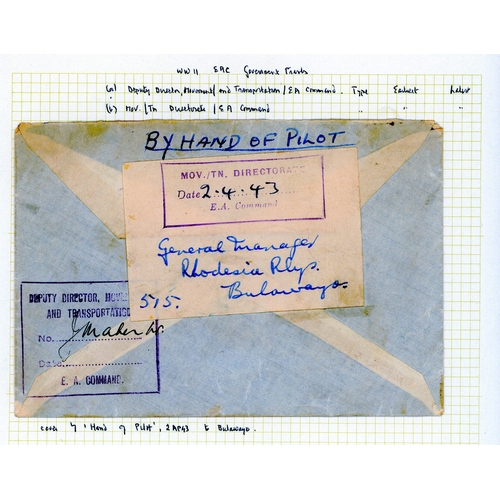 WW II EAC Government Frank
(a) Deputy Director, Movement/and Transportation / EA Command. Type Earliest Latest
(b) Mov. / Tn Directorate / EA Command " " "
BY HAND OF PILOT
MOV./TN. DIRECTORATE
Date 2.4.43
E.A. Command
General Manager
Rhodesia Rlys.
515. Bulawayo.
DEPUTY DIRECTOR, MOVE
AND TRANSPORTATIO
No.
Date
E. A. COMMAND.
cover by 'Hand of Pilot', 2AP43 to Bulawayo.